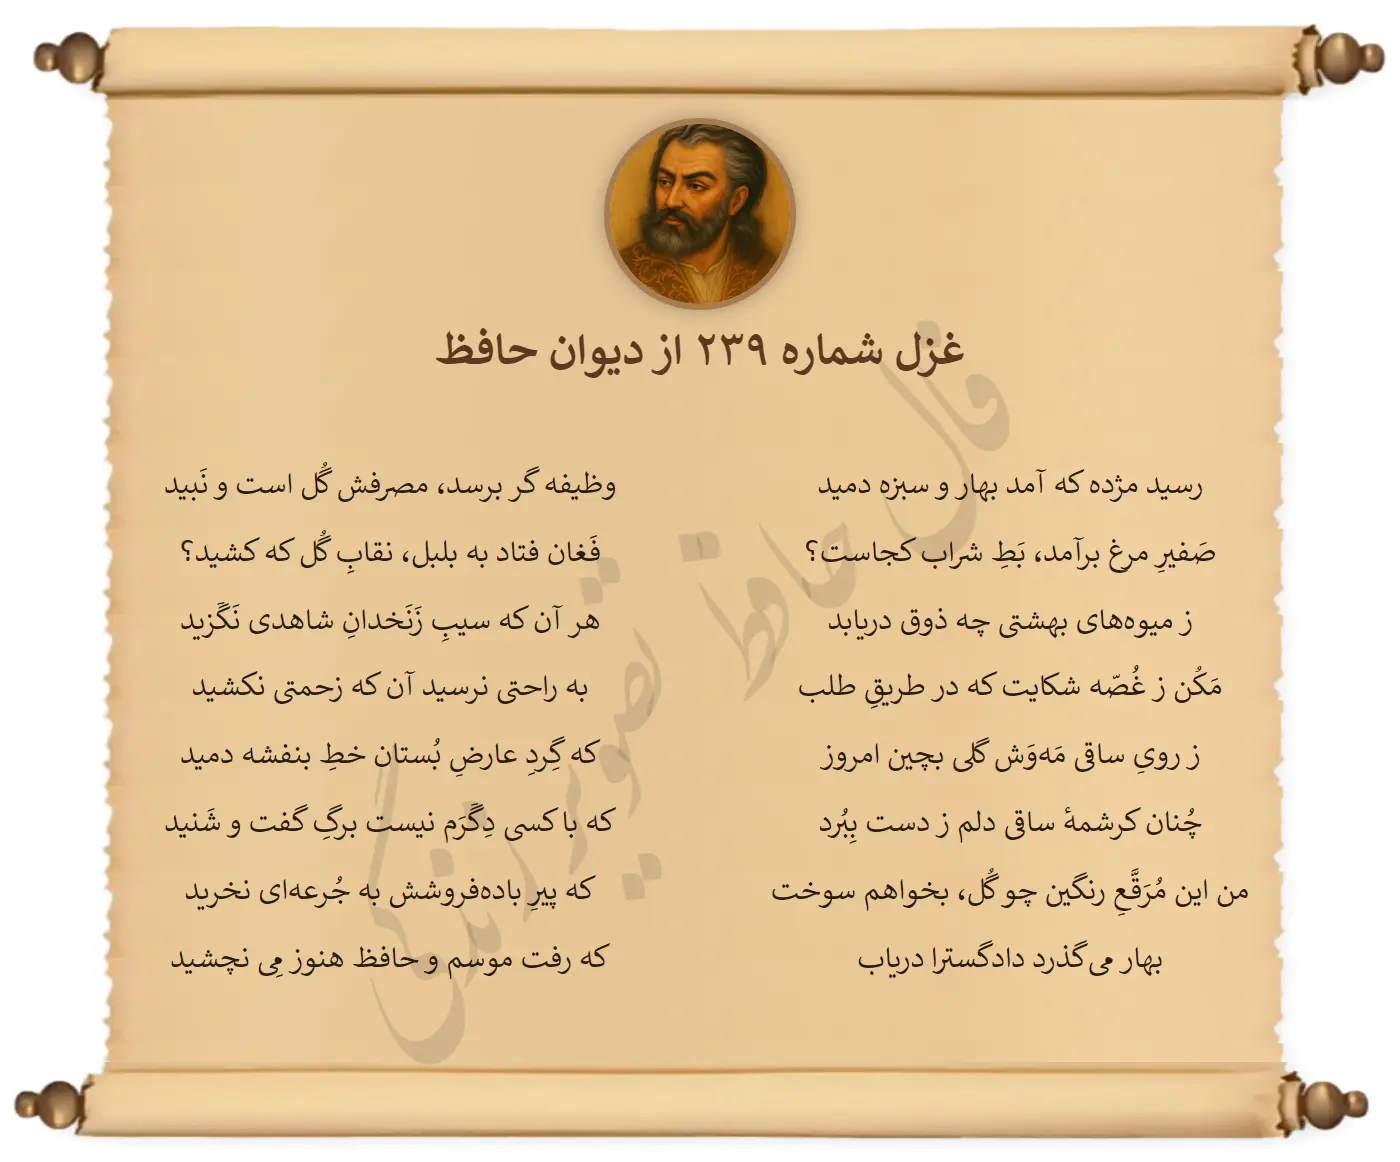 غزل شماره ۲۳۹ از دیوان حافظ
رسید مژده که آمد بهار و سبزه دمید
وظیفه گر برسد، مصرفش گُل است و نَبید
صَفیرِ مرغ برآمد، بَطِ شراب کجاست؟
فَغان فتاد به بلبل، نقابِ گُل که کشید؟
ز میوه‌های بهشتی چه ذوق دریابد
هر آن که سیبِ زَنَخدانِ شاهدی نَگَزید
مَکُن ز غُصّه شکایت که در طریقِ طلب
به راحتی نرسید آن که زحمتی نکشید
ز رویِ ساقی مَه‌وَش گلی بچین امروز
که گِردِ عارضِ بُستان خطِ بنفشه دمید
چُنان کرشمهٔ ساقی دلم ز دست بِبُرد
که با کسی دِگَرَم نیست برگِ گفت و شَنید
من این مُرَقَّعِ رنگین چو گُل، بخواهم سوخت
که پیرِ باده‌فروشش به جُرعه‌ای نخرید
بهار می‌گذرد دادگسترا دریاب
که رفت موسم و حافظ هنوز مِی نچشید
فال حافظ تصویر زندگی